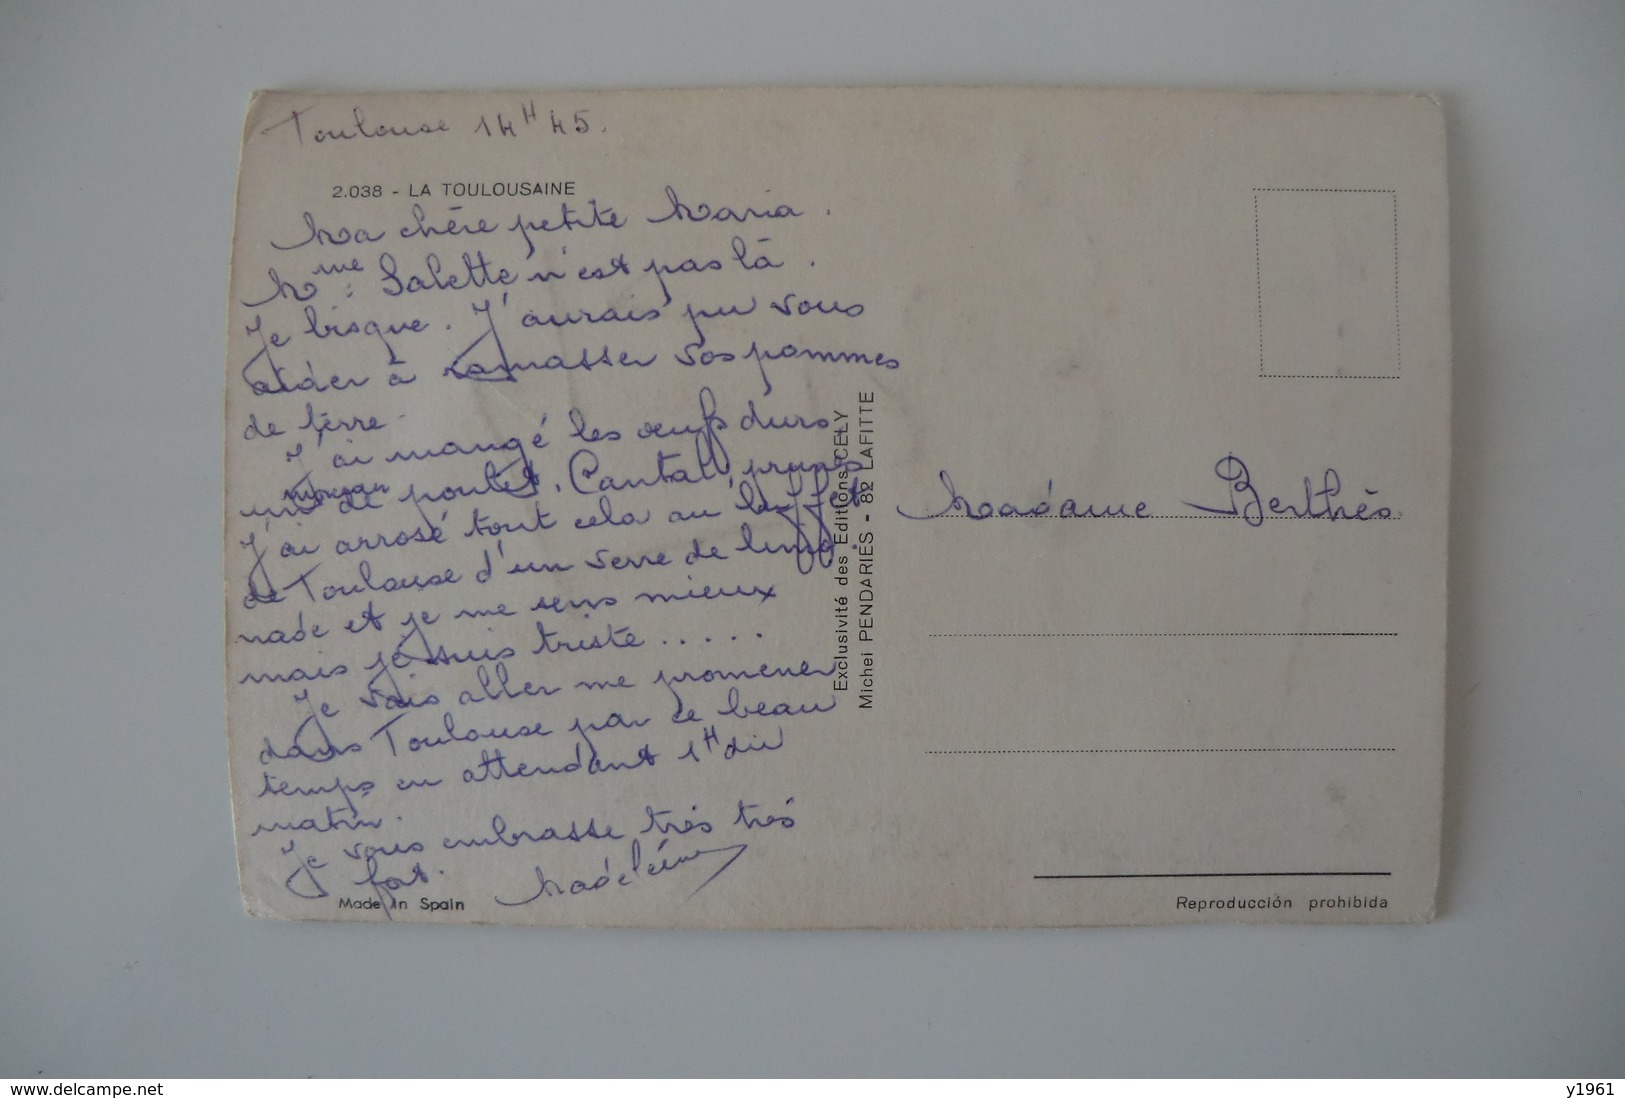 Toulouse 14H45.
2.038 - LA TOULOUSAINE
Ma chère petite Maria.
Mme Salette n'est pas là.
Je bisque. J'aurais pu vous
aider à ramasser vos pommes
de terre.
J'ai mangé les œufs durs
un morceau de poulet, Cantal, prunes
J'ai arrosé tout cela au buffet
de Toulouse d'un verre de limo-
nade et je me sens mieux
mais je suis triste.....
Je vais aller me promener
dans Toulouse par ce beau
temps en attendant 1H du
matin.
Je vous embrasse très très
fort. Madeleine
Made in Spain
Exclusivité des Editions CELY
Michel PENDARIES - 82 LAFITTE
Madame Berthès
Reproducción prohibida
www.delcampe.net
y1961